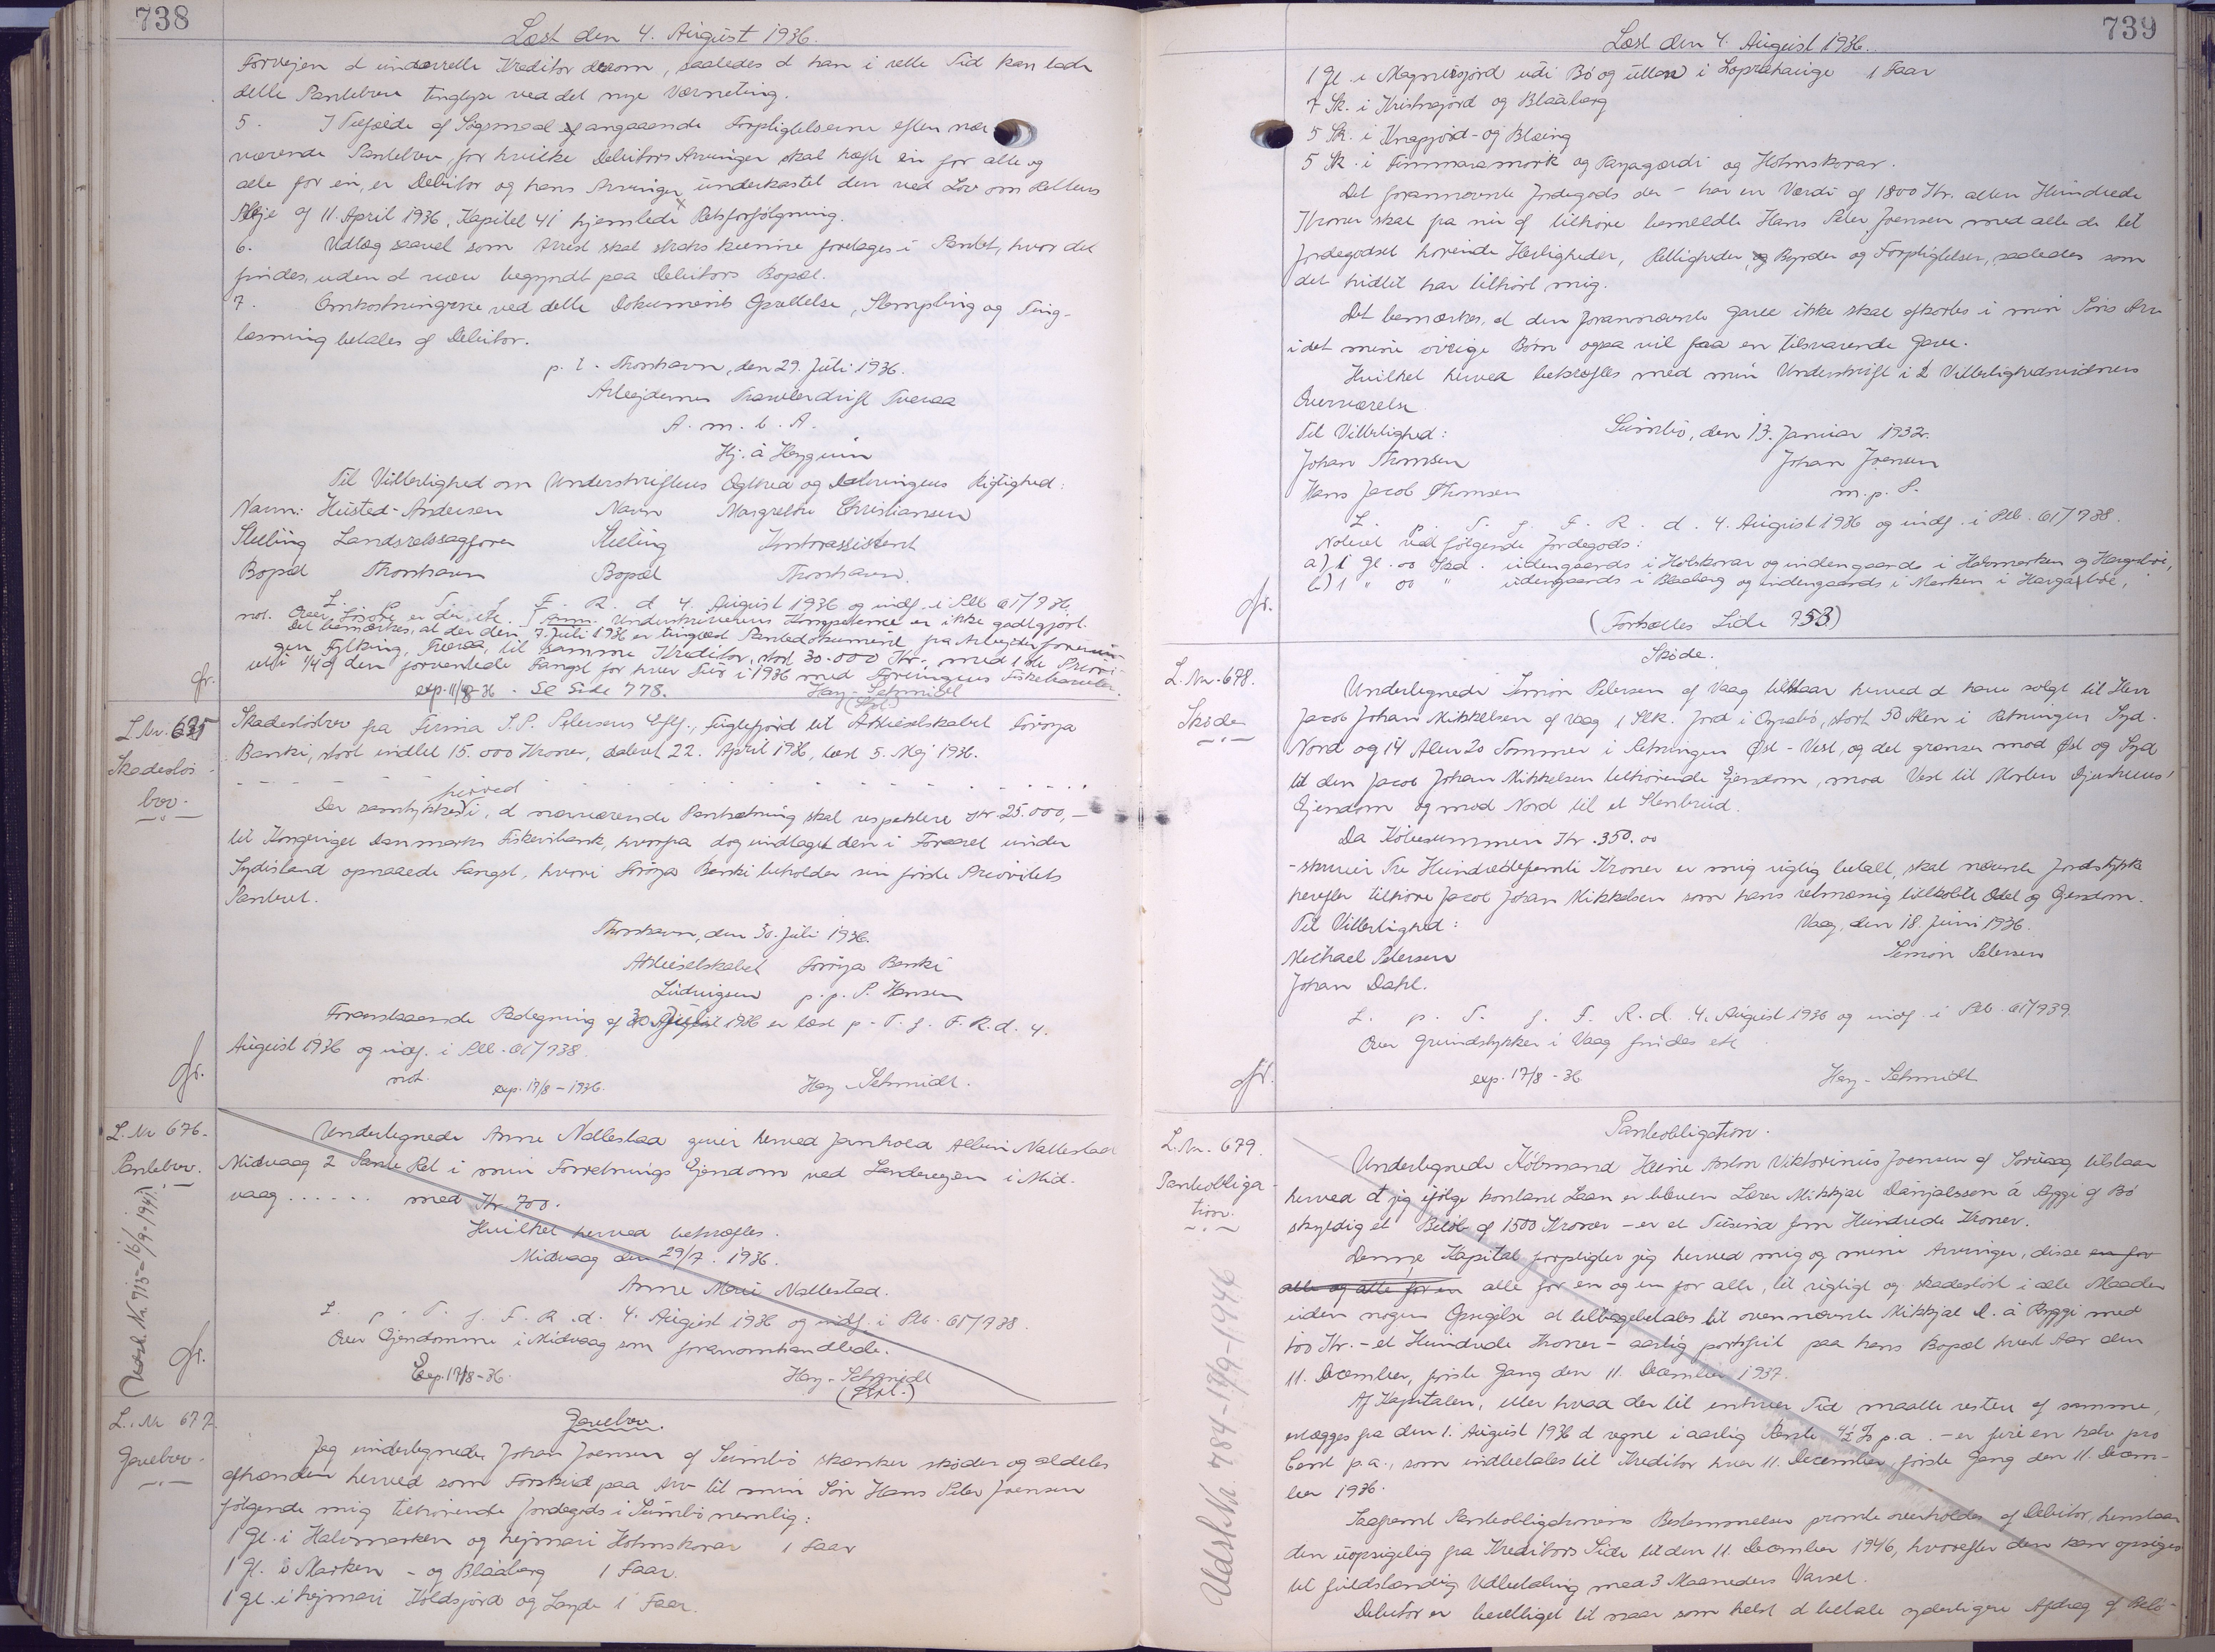 738
Læst den 4. August 1936.
Forvejen at underrette Kreditor derom, saaledes at han i rette Tid kan lade
dette Pantebrev tinglyse ved det nye Værneting.
5. I Tilfælde af Søgsmaal angaaende Forpligtelserne efter nær
værende Pantebrev, for hvilke Debitors Arvinger skal hæfte en for alle og
alle for en, er Debitor og hans Arvinger underkastet den ved Lov om Rettens
Pleje af 11. April 1936, Kapitel 41 hjemlede Retsforfølgning.
6. Udlæg saavel som Arrest skal straks kunne foretages i Pantet, hvor det
findes, uden at være begyndt paa Debitors Bopæl.
7. Omkostningerne ved dette Dokuments Oprettelse, Stempling og Ting-
læsning betales af Debitor.
p. t. Thorshavn, den 29. Juli 1936.
Arbejdernes Trawlerdrift Tveraa
A. m. b. A.
Hj. á Heygum
Til Vitterlighed om Underskriftens Ægthed og Dateringens Rigtighed:
Navn: Husted-Andersen Navn Margrethe Christiansen
Stilling Landsretssagfører Stilling Kontorassistent
Bopæl Thorshavn Bopæl Thorshavn.
L. p. T. f. F. R. d. 4. August 1936 og indf. i Ptb 61/736.
not. Over Løsøre er der etc. Anm. Underskriverens Kompetence er ikke godtgjort.
Det bemærkes, at der den 7. Juli 1936 er tinglæst Pantedokument fra Arbejderforenin
gen Fylking, Tveraa, til samme Kreditor, stort 30.000 Kr., med 1ste Priori-
tet i 1/4 af den forventede Fangst for hver Tur i 1936 med Foreningens Fiskekutter.
gr.
exp. 11/8-36. Se Side 778. Hey-Schmidt
L. Nr. 675
Skadesløs-
brev.
Skadesløsbrev fra Firma J.P. Petersens Eftf., Fuglefjord til Aktieselskabet Føroya
Banki, stort indtil 15.000 Kroner, dateret 22. April 1936, læst 5. Maj 1936.
herved
Der samtykkes i, at nærværende Panteretning skal respektere Kr. 25.000,-
til Kongeriget Danmarks Fiskeribank, hvorfra dog undtaget den i Foraaret under
Sydisland opnaaede Fangst, hvori Føroya Banki beholder sin første Prioritets
Panteret.
Thorshavn, den 30. Juli 1936.
Aktieselskabet Føroya Banki
Ludvigsen p.p. P. Hansen
Foranstaaende Paategning af 30 Juli 1936 er læst p. T. f. F. R. d. 4.
August 1936 og indf. i Ptb. 61/738.
gr.
not. exp. 17/8-1936. Hey-Schmidt.
L. Nr 676.
Pantebrev.
Udsl. Nr. 715-16/9-1941.
Undertegnede Anne Nallestad giver herved Jarnhold Albin Nallestad
Midvaag 2 Pante Ret i min Forretnings Ejendom ved Landevejen i Mid-
vaag ...... med Kr 700.
Hvilket herved bekræftes.
Midvaag den 29/7. 1936.
Anne Marie Nallestad.
L. p. T. f. F. R. d. 4. August 1936 og indf. i Ptb. 61/738.
Over Ejendomme i Midvaag som foranomhandlede.
gr.
Exp. 17/8-36. Hey-Schmidt
L. Nr 677.
Gavebrev.
Gavebrev.
Jeg undertegnede Johan Joensen af Sumbø skænker skøder og aldeles
afhænder herved som Forskud paa Arv til min Søn Hans Peter Joensen
følgende mig tilhørende Jordegods i Sumbø nemlig:
1 Gl. i Halvmarken og hejmari Holmskorar 1 Faar
1 Gl. i Marken - og Blaaberg 1 Faar.
1 Gl. i hejmari Koldsjord og Layde 1 Faar.
739
Læst den 4. August 1936.
1 Gl. i Magnusjord udi Bø og uttan i Loprahauge 1 Faar
7 Sk. i Kristnajord og Blaaberg
5 Sk. i Knapjord- og Blæing
5 Sk. i Timmaramørk og Payagærdi og Holmskorar.
Det forannævnte Jordegods der - har en Værdi af 1800 Kr. atten Hundrede
Kroner skal fra nu af tilhøre bemeldte Hans Peter Joensen med alle de til
Jordegodset hørende Herligheder, Rettigheder, Byrder og Forpligtelser, saaledes som
det hidtil har tilhørt mig.
Det bemærkes, at den forannævnte Gave ikke skal afkortes i min Søns Arv
idet mine øvrige Børn ogsaa vil faa en tilsvarende Gave.
Hvilket herved bekræftes med min Underskrift i 2 Vitterlighedsvidners
Overværelse.
Til Vitterlighed: Sumbø, den 13. Januar 1932.
Johan Thomsen Johan Joensen
Hans Jacob Thomsen m. p. P.
L. p. T. f. F. R. d. 4. August 1936 og indf. i Ptb. 61/738.
Noteret ved følgende Jordegods:
a) 1 Gl. 00 Skd. udengaards i Holskorar og indengaards i Halvmarken og Hargabø,
b) 1 " 00 " udengaards i Blaaberg og indengaards i Marken i Hargabø,
gr.
(Fortsættes Side 758)
L. Nr. 678.
Skøde
Skøde.
Undertegnede Simon Petersen af Vaag tilstaar herved at have solgt til Herr
Jacob Johan Mikkelsen af Vaag 1 Stk. Jord i Oyrabø, stort 50 Alen i Retningen Syd-
Nord og 14 Alen 20 Tommer i Retningen Øst-Vest, og det grænser mod Øst og Syd
til den Jacob Johan Mikkelsen tilhørende Ejendom, mod Vest til Morten Djurhuus'
Ejendom og mod Nord til et Stenbrud.
Da Købesummen Kr. 350.00
-skriver Tre Hundredefemti Kroner er mig rigtig betalt, skal nævnte Jordstykke
herefter tilhøre Jacob Johan Mikkelsen som hans retmæssig tilkøbte Odel og Ejendom.
Til Vitterlighed: Vaag, den 18. Juni 1936.
Michael Petersen Simon Petersen
Johan Dahl.
L. p. T. f. F. R. d. 4. August 1936 og indf. i Ptb. 61/739.
Over Grundstykker i Vaag findes etc
gr.
exp. 17/8-36. Hey-Schmidt
L. Nr. 679.
Panteobliga-
tion.
Udsl. Nr. 784-17/9-1946
Panteobligation.
Undertegnede Købmand Heine Anton Viktorinus Joensen af Sørvaag tilstaar
herved at jeg ifølge kontant Laan er bleven Lærer Mikkjal Dánjalsson á Ryggi af Bø
skyldig et Beløb af 1500 Kroner - er et Tusind fem Hundrede Kroner.
Denne Kapital forpligter jeg herved mig og mine Arvinger, disse en for
alle og alle for en alle for en og en for alle, til rigtigt og skadesløst i alle Maader
uden nogen Opsigelse at tilbagebetales til ovennævnte Mikkjal D. á Ryggi med
100 Kr. - et Hundrede Kroner - aarlig portofrit paa hans Bopæl hvert Aar den
11. December, første Gang den 11. December 1937.
Af Kapitalen, eller hvad der til enhver Tid maatte restere af samme,
erlægges fra den 1. August 1936 at regne i aarlig Rente 4½ % p.a. - er fire en halv pro
Cent p.a., som indbetales til Kreditor hver 11. December, første Gang den 11. Decem-
ber 1936.
Saafremt Panteobligationens Bestemmelser promte overholdes af Debitor, henstaar
den uopsigelig fra Kreditors Side til den 11. December 1946, hvorefter den kan opsiges
til fuldstændig Udbetaling med 3 Maaneders Varsel.
Debitor er berettiget til naar som helst at betale yderligere Afdrag af Belø-